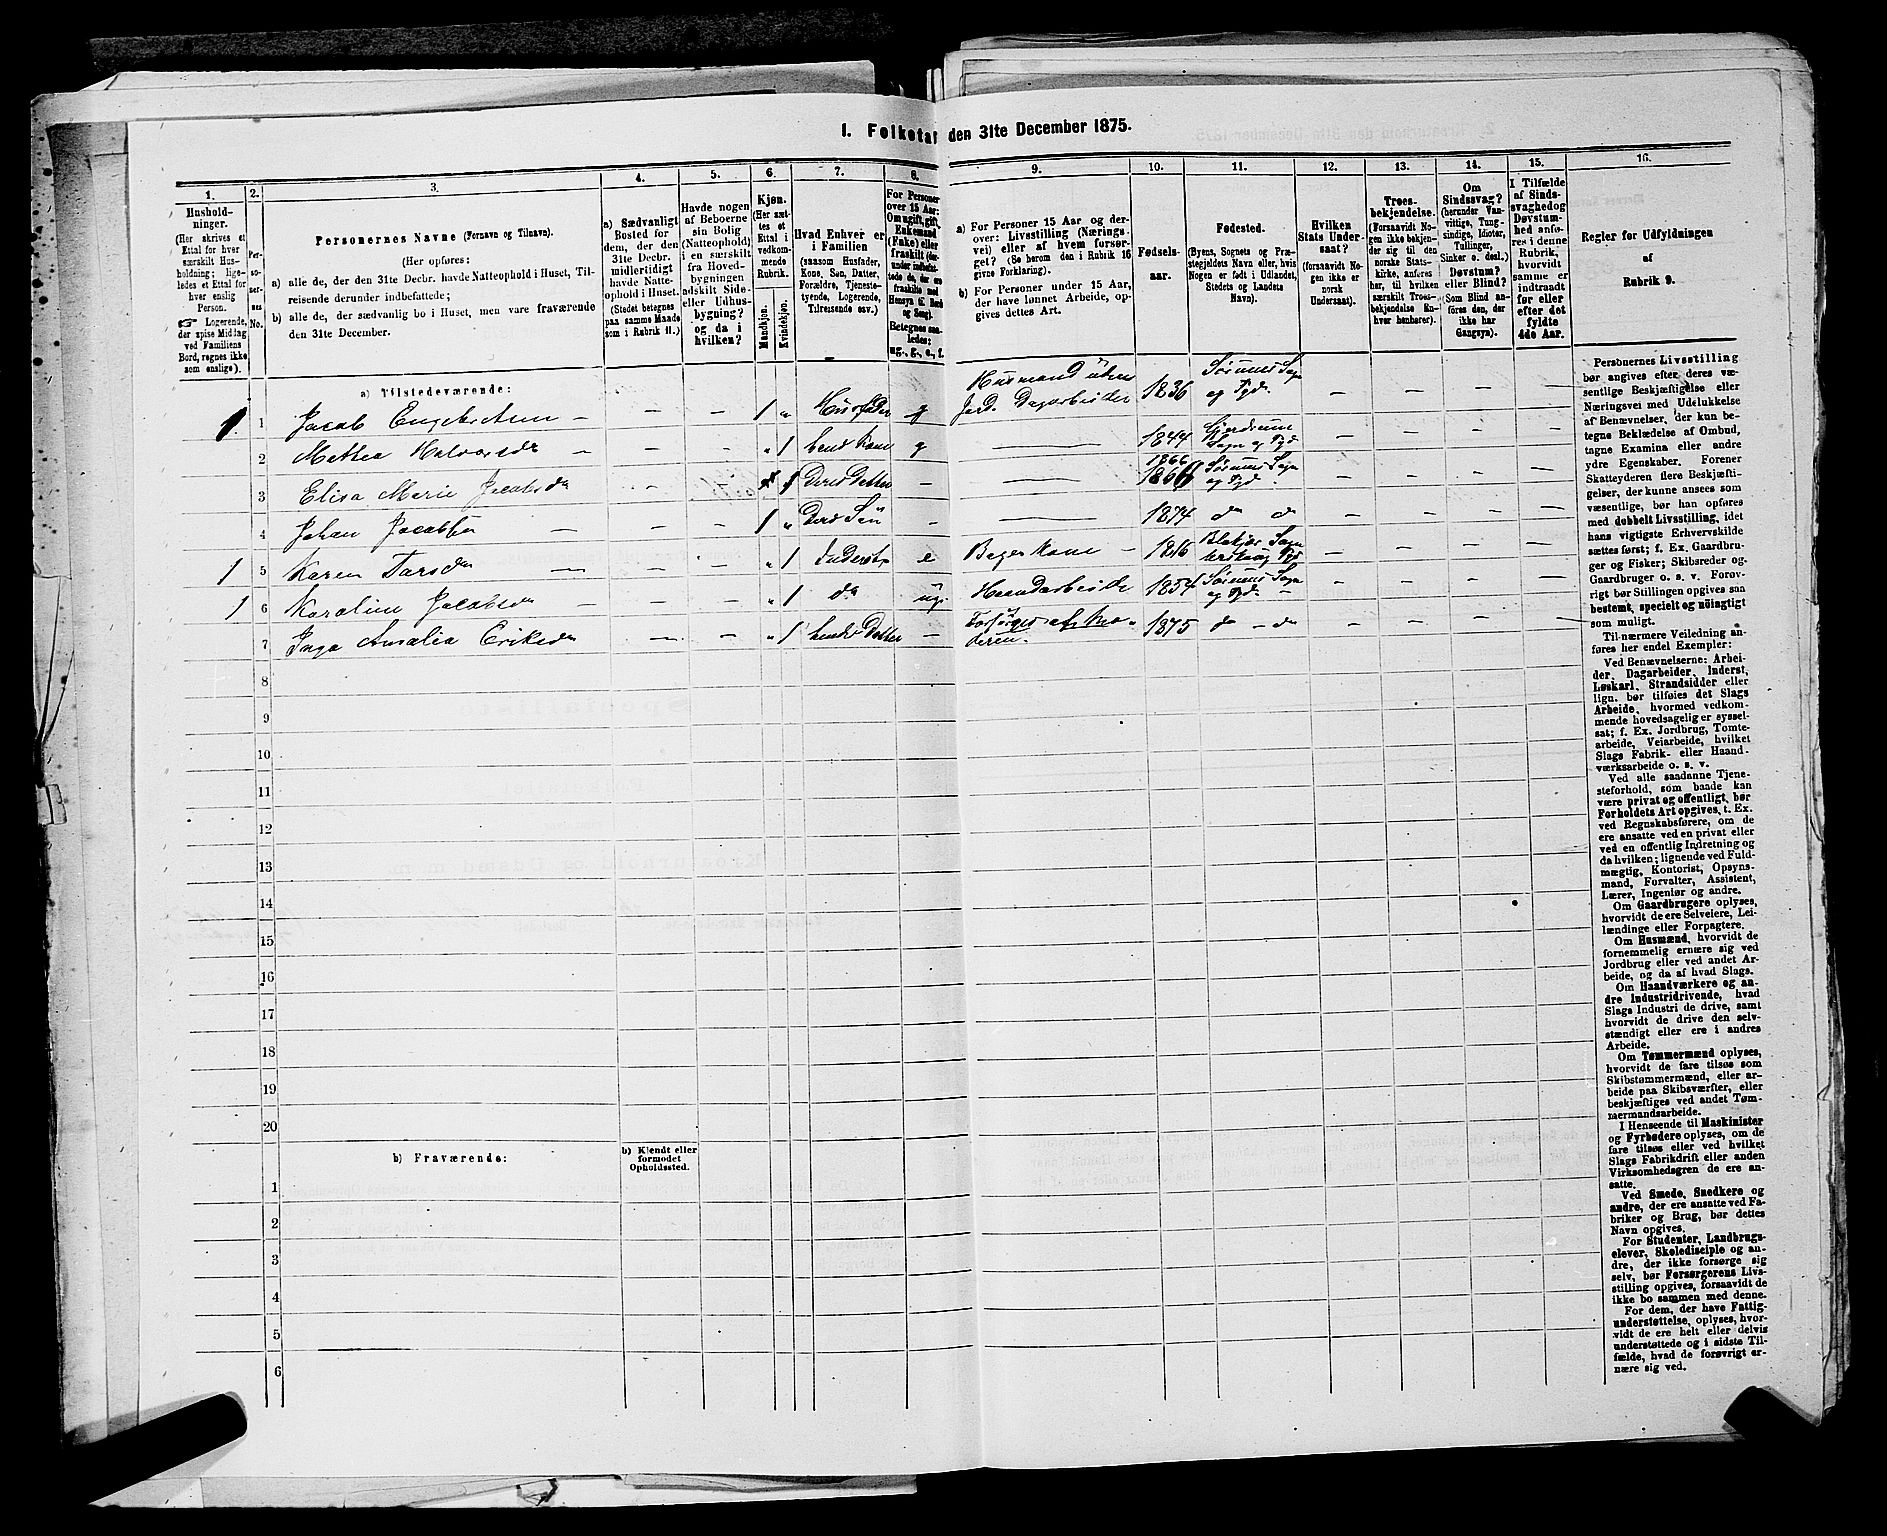 1. Folketæl den 31te December 1875.
1.
2.
3.
4.
5.
6.
7.
8.
9.
10.
11.
12.
13.
14.
15.
16.
Hushold-
ninger.
(Her skrives et
Ettal for hver
særskilt Hus-
holdning; lige-
ledes et Ettal for
hver enslig
Person.
☞ Logerende,
der spise Middag
ved Familiens
Bord, regnes ikke
som enslige).
Per-
so-
ner-
nes
No.
Personernes Navne (Fornavn og Tilnavn).
(Her opføres:
a) alle de, der den 31te Decbr. havde Natteophold i Huset, Til-
reisende derunder indbefattede;
b) alle de, der sædvanlig bo i Huset, men vare fraværende
den 31te December.
a) Sædvanligt
Bosted for
dem, der den
31te Decbr.
midlertidigt
havde Natte-
ophold i Huset.
(Stedet betegnes
paa samme Maade
som i Rubrik 11.)
Havde nogen
af Beboerne
sin Bolig
(Natteophold)
i en særskilt
fra Hoved-
bygningen
adskilt Side-
eller Udhus-
bygning?
og da i
hvilken?
Kjøn.
(Her sæt-
tes et
Ettal i
vedkom-
mende
Rubrik.
Mandkjøn.
Kvindekjøn.
Hvad Enhver er
i Familien
(saasom Husfader,
Kone, Søn, Datter,
Forældre, Tjeneste-
tyende, Logerende,
Tilreisende osv.)
For Personer
over 15 Aar:
Om ugift, gift,
Enkemand
(Enke) eller
fraskilt
Betegnes saa-
ledes:
ug., g., e., f.
a) For Personer 15 Aar og der-
over: Livsstilling (Nærings-
vei) eller af hvem forsør-
get? (Se herom den i Rubrik 16
givne Forklaring).
b) For Personer under 15 Aar,
der have lønnet Arbeide, op-
gives dettes Art.
Fødsels-
aar.
Fødested.
(Byens, Sognets og Præ-
stegjeldets Navn eller, hvis
Nogen er født i Udlandet,
Stedets og Landets
Navn).
Hvilken
Stats Under-
saat?
(forsaavidt No-
gen ikke er
norsk
Undersaat).
Troes-
bekjendelse.
(Forsaavidt No-
gen ikke bekjen-
der sig til den
norske Stats-
kirke, anføres
her, til hvilken
særskilt Troes-
bekjendelse En-
hver henhører).
Om
Sindssvag?
(herunder Van-
vittige, Tung-
sindige, Idioter,
Tullinger,
Sinker o. desl.)
Døvstum?
eller Blind?
(Som Blind an-
føres den, der
ikke har
Gangsyn).
I Tilfælde
af Sinds-
svaghed og
Døvstum-
hed anfø-
res i denne
Rubrik,
hvorvidt
samme er
indtraadt
før eller
efter det
fyldte
4de Aar.
Regler for Udfyldningen
af
Rubrik 9.
a) Tilstedeværende:
1 1 Jacob Engebretsen — — 1 „ Husfader g Husmand uden Jord. Dagarbeider 1836 Sørums Sogn og Pgd. — — — —
2 Mathea Halvorsdr — — — „ 1 hans Kone g — 1844 Gjerdrum Sogn og Pgd — — — —
3 Elisa Marie Jacobsdr „ 1 Deres Datter — — 1866 Sørums Sogn og Pgd. — — — —
4 Johan Jacobsen — — — 1 „ Deres Søn — — 1874 do do — — — —
1 5 Karen Larsdr — — — „ 1 Inderst e Bager Kone — 1816 Blakjær Sogn Urskoug Pgd — — — —
1 6 Karoline Jacobsdr — — — „ 1 do ug. Haandarbeide 1854 Sørums Sogn og Pgd. — — — — —
7 Inga Amalia Eriksdr — — „ 1 hendes Datter — Forsørges af Moderen 1875 do — do — — — —
8
9
10
11
12
13
14
15
16
17
18
19
20
b) Fraværende:
b) Kjendt eller
formodet
Opholdssted.
1
2
3
4
5
6
Personernes Livsstilling
bør angives efter deres væ-
sentlige Beskjæftigelse eller
Næringsvei med Udelukkelse
af Benævnelser, der kun be-
tegne Beklædelse af Ombud,
tagne Examina eller andre
ydre Egenskaber. Forener
Skatteyderen flere Beskjæfti-
gelser, der kunne ansees som
væsentlige, bør han opføres
med dobbelt Livsstilling, idet
hans vigtigste Erhvervskilde
sættes først; f. Ex. Gaardbru-
ger og Fisker; Skibsreder og
Gaardbruger o. s. v. Forøv-
rigt bør Stillingen opgives saa
bestemt, specielt og nøiagtigt
som muligt.
Til nærmere Veiledning an-
føres her endel Exempler:
Ved Benævnelserne: Arbei-
der, Dagarbeider, Inderst,
Løskarl, Strandsidder eller
lign. bør tilføies det Slags
Arbeide, hvormed vedkom-
mende hovedsagelig er syssel-
sat; f. Ex. Jordbrug, Tomte-
arbeide, Veiarbeide, hvilket
Slags Fabrik- eller Haand-
værksarbeide o. s. v.
Ved alle saadanne Tjene-
steforhold, som baade kan
være privat og offentligt, bør
Forholdets Art opgives, t. Ex.
ved Regnskabsførere, om de
ere ansatte ved en privat eller
ved en offentlig Indretning og
da hvilken; lignende ved Fuld-
mægtig, Kontorist, Opsyns-
mand, Forvalter, Assistent,
Lærer, Ingeniør og andre.
Om Gaardbrugere oplyses,
hvorvidt de ere Selveiere, Lei-
lændinge eller Forpagtere.
Om Husmænd, hvorvidt de
fornemmelig ernære sig ved
Jordbrug eller ved andet Ar-
beide, og da af hvad Slags.
Om Haandværkere og an-
dre Industridrivende, hvad
Slags Industri de drive, samt
hvorvidt de drive den selv-
stændigt eller ere i andres
Arbeide.
Om Tømmermænd oplyses,
hvorvidt de fare tilsøs som
Skibstømmermænd, eller ar-
beide paa Skibsværfter, eller
beskjæftiges ved andet Tøm-
mermandsarbeide.
I Henseende til Maskinister
og Fyrbødere oplyses, om de
fare tilsøs eller ved hvilket
Slags Fabrikdrift eller anden
Virksomhedsgren de ere an-
satte.
Ved Smede, Snedkere og
andre, der ere ansatte ved Fa-
briker og Brug, bør dettes
Navn opgives.
For Studenter, Landbrugs-
elever, Skoledisciple og an-
dre, der ikke forsørge sig
selv, bør Forsørgerens Livs-
stilling opgives, forsaavidt de
ikke bo sammen med denne.
For dem, der have Fattig-
understøttelse, oplyses, hvor-
vidt de ere helt eller delvis
understøttede og i sidste Til-
fælde, hvad de forøvrigt er-
nære sig ved.